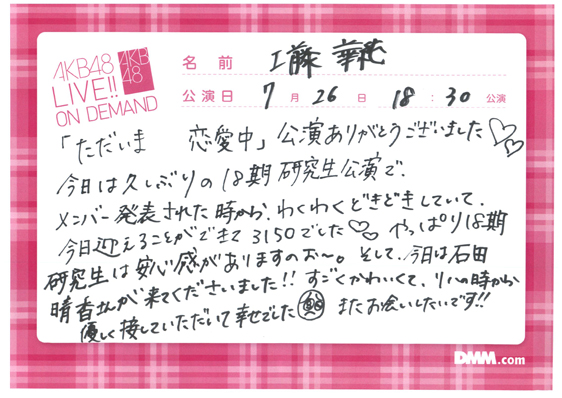 AKB48
LIVE!!
ON DEMAND
AKB
48
名前 工藤 華純
公演日 7月26日 18:30公演
「ただいま 恋愛中」公演ありがとうございました♡♡
今日は久しぶりの18期研究生公演で、
メンバー発表された時から、わくわくどきどきしていて、
今日迎えることができて3150でした♡♡ やっぱり18期
研究生は安心感がありますのぉ〜。そして、今日は石田
晴香さんが来てくださいました!! すごくかわいくて、リハの時から
優しく接していただいて幸せでした またお会いしたいです!!
DMM.com